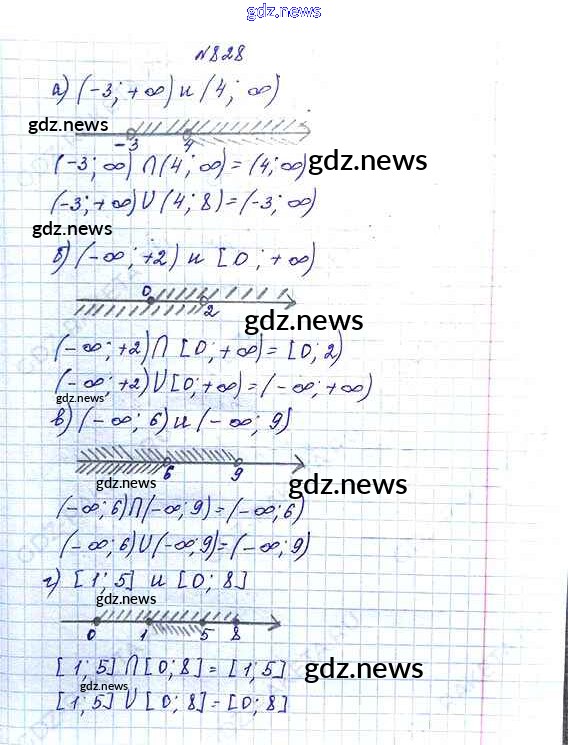 gdz.news
№828
а) (-3; +∞) и (4; ∞)
gdz.news
-3 4
(-3; ∞) ∩ (4; ∞) = (4; ∞) gdz.news
(-3; +∞) U (4; 8) = (-3; ∞)
gdz.news
б) (-∞; +2) и [0; +∞)
0 2
gdz.news
(-∞; +2) ∩ [0; +∞) = [0; 2)
(-∞; +2) U [0; +∞) = (-∞; +∞)
gdz.news
в) (-∞; 6) и (-∞; 9)
6 9
gdz.news gdz.news
(-∞; 6) ∩ (-∞; 9) = (-∞; 6)
(-∞; 6) U (-∞; 9) = (-∞; 9)
г) [1; 5] и [0; 8]
gdz.news
0 1 5 8
[1; 5] ∩ [0; 8] = [1; 5] gdz.news
gdz.news
[1; 5] U [0; 8] = [0; 8]